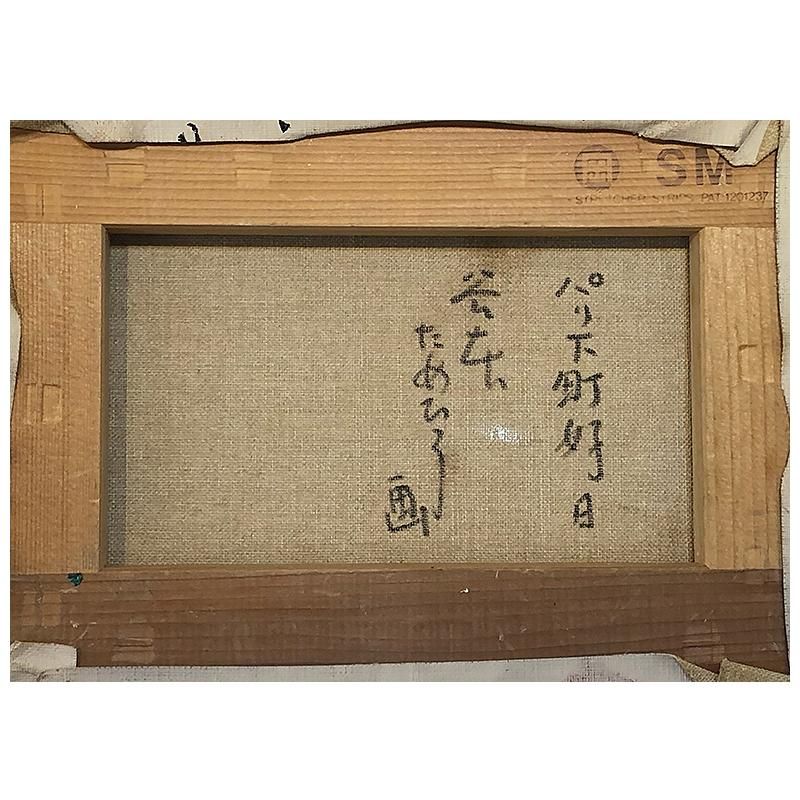 パリ下町好日
谷本
ためひろ
画
SM
STRETCHER STRIPS PAT.1201237